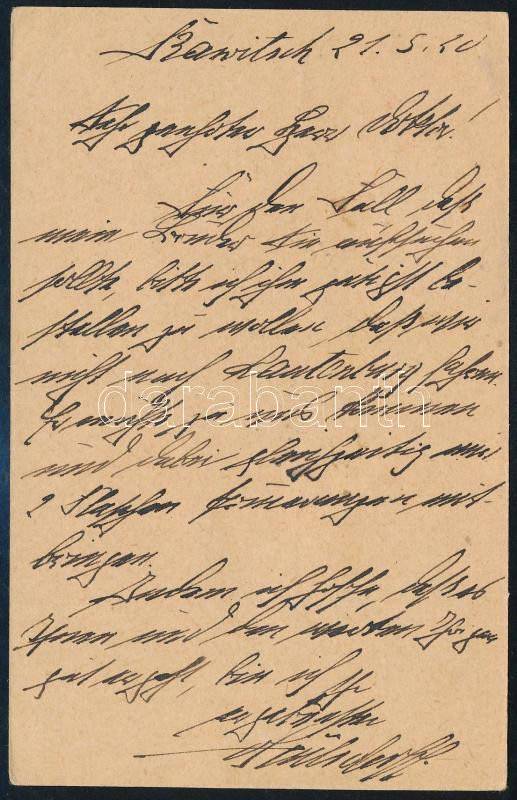 Rawitsch 21.5.20
Sehr geehrter Herr Doktor!
Für den Fall daß
mein Bruder Sie aufsuchen
sollte, bitte ich ihn gütigst be-
stellen zu wollen, daß wir
nicht nach Lautenburg fahren.
Er möge zu uns kommen
darabanth
und dabei gleichzeitig mir
2 Flaschen mit-
bringen.
Indem ich hoffe, daß es
Ihnen und den werten Ihrigen
gut ergeht, bin ich Ihr
ergebenster